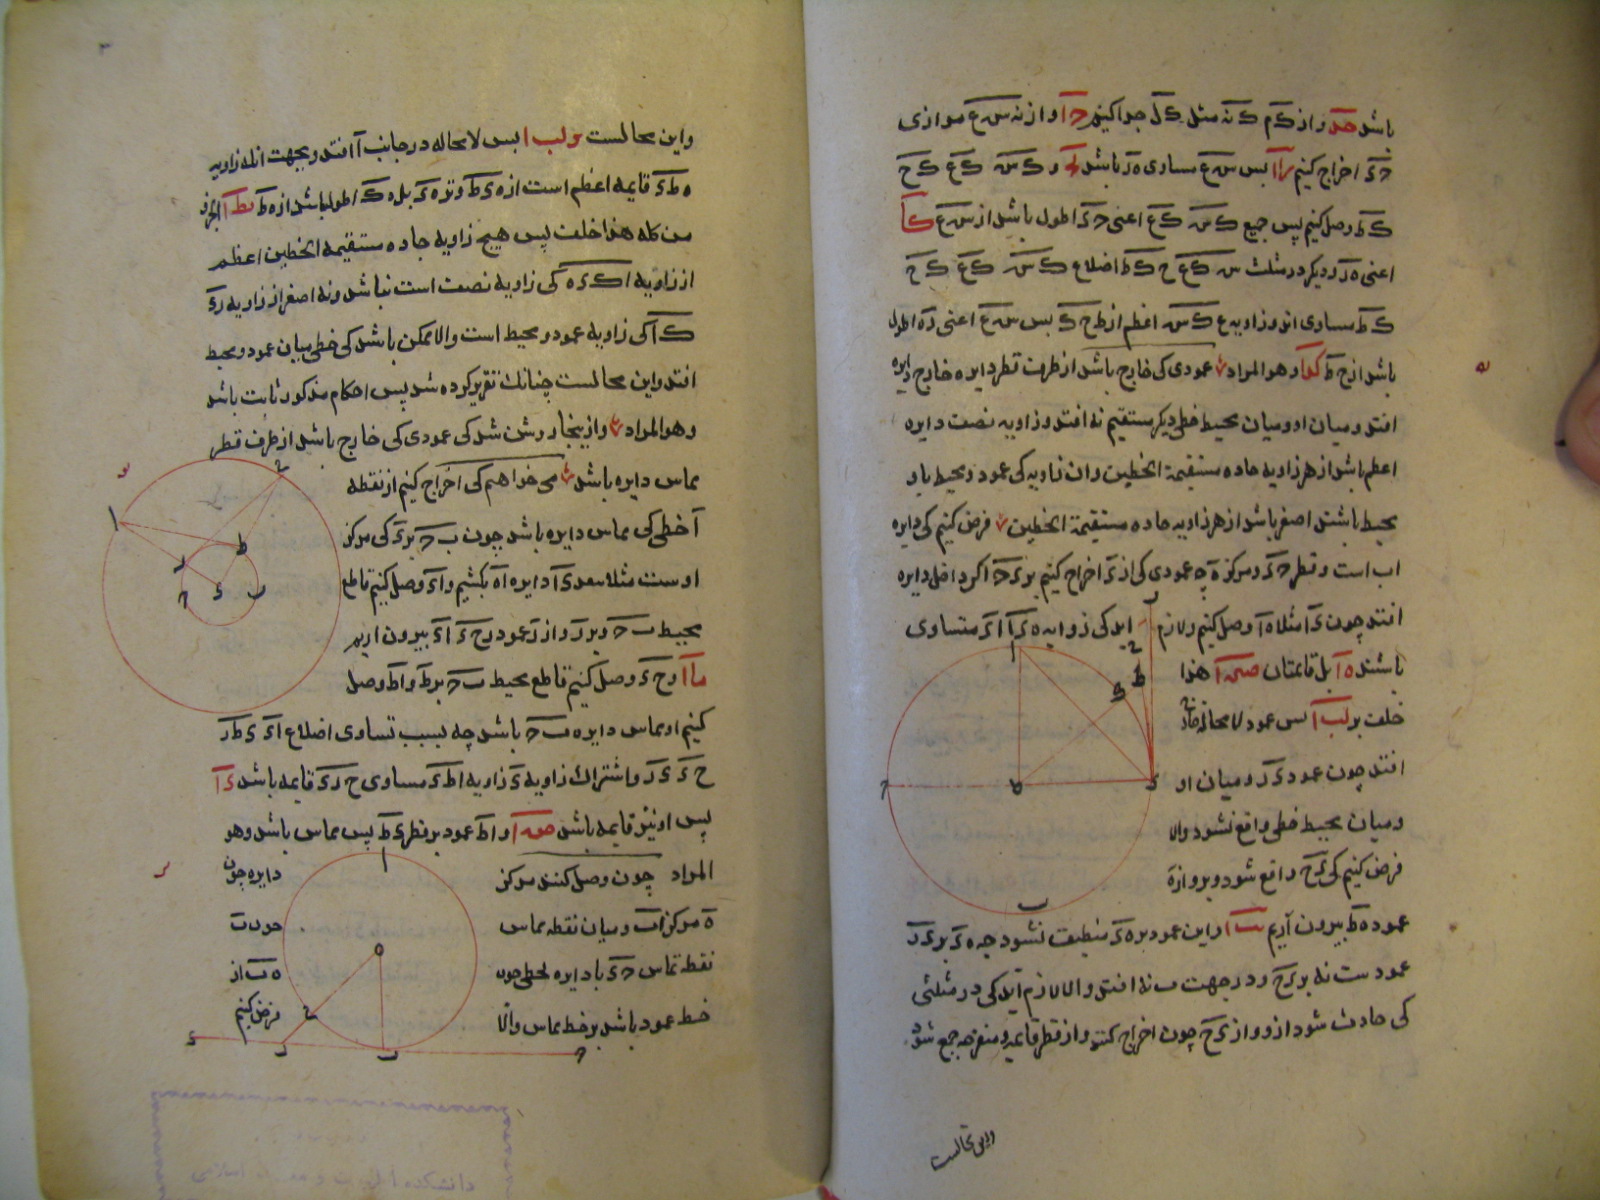 باشد حد واز ک م ک نه مثل ک ل جدا کنیم ج آ واز نه س ع موازی
ج ءَ اخراج کنیم لا آ پس س ع مساوی ه ر باشد و ک س ک ع ک ح
ک ط وصل کنیم پس جمیع ک س ک ع اعنی ج ءَ اطول باشد از س ع ک آ
اعنی ه ر ودیگر در مثلث س ک ع ح ک ط اضلاع ک س ک ع ک ح
ک ط مساوی اند وزاویه ع ک س اعظم از ط ح ک پس س ع اعنی ر ه اطول
باشد از ح ط کد آ وهو المراد عمودی کی خارج باشد از طرف قطر دایره خارج دایره
افتد ومیان او ومیان محیط خطی دیگر مستقیم نه افتد وزاویه نصف دایره
اعظم باشد از هر زاویه حاده مستقیمة الخطین وان زاویه کی عمود ومحیط باو
محیط باشند اصغر باشد از هر زاویه حاده مستقیمة الخطین فرض کنیم کی دایره
اب است وقطر ج ءَ ومرکز ه چه عمودی کی از ءَ اخراج کنیم بر ءَ ج اکر داخل دایره
افتد چون ءَ آ مثلا ه آ وصل کنیم ولازم اید کی زوایه ه ءَ آ ا ءَ متساوی
باشند ه آ بل قائمتان هذا
خلف بر لب آ پس عمود لا محاله خارج
افتد چون عمود ءَ ر ومیان او
ومیان محیط خطی واقع نشود والا
فرض کنیم کی ءَ ح واقع شود وبر واز ه
عمود ه ط بیرون آریم ب آ واین عمود بر ه ءَ منطبق نشود چه ه ءَ بر ءَ ر
عمودست نه بر ءَ ح ودر جهت ب نه افتد والا لازم اید کی در مثلثی
کی حادث شود از و واز ءَ ح چون اخراج کنند واز قطر قایمه ومنفرجه جمع شود
واین محالست
واین محالست بر لب آ پس لا محاله در جانب آ افتد وبجهت انکه زاویه
ه ط ءَ قایمه اعظم است از ه ءَ ط وتر ه ءَ بل ه ک اطول باشد از ه ط بط آ الجزء
من کله هذا خلف پس هیچ زاویه حاده مستقیمة الخطین اعظم
از زاویه ا ک ءَ ه کی زاویه نصف است نباشد ونه اصغر از زاویه ر ءَ
ک آ کی زاویه عمود ومحیط است والا ممکن باشد کی خطی میان عمود ومحیط
افتد واین محالست چنانک تقریر کرده شد پس احکام مذکور ثابت باشد
وهو المراد وازینجا روشن شد کی عمودی کی خارج باشد از طرف قطر
مماس دایره باشد می خواهم کی اخراج کنیم از نقطه
آ خطی کی مماس دایره باشد چون ب ج بر ءَ کی مرکز
اوست مثلا ببعد ءَ آ دایره آه بکشیم و آ ءَ وصل کنیم قاطع
محیط ب ج بر ر واز ر عمود ر ح ءَ آ ءَ بیرون اریم
ما آ و ح ءَ وصل کنیم قاطع محیط ب ج بر ط و ا ط وصل
کنیم او مماس دایره ب ج باشد چه بسبب تساوی اضلاع ا ءَ ءَ ط ر
ح ءَ ءَ ر واشتراک زاویه ءَ زاویه ا ط ءَ مساوی ح ر ءَ قایمه باشد ءَ آ
پس او نیز قایمه باشد وا ط عمود بر قطر ءَ ط پس مماس باشد وهو
المراد چون وصل کنند مرکز دایره چون
ه مرکز اب ومیان نقطه مماس چون ب
نقطه تماس ج ءَ با دایره بخطی چون ه ب از
خط عمود باشد بر خط مماس والا فرض کنیم